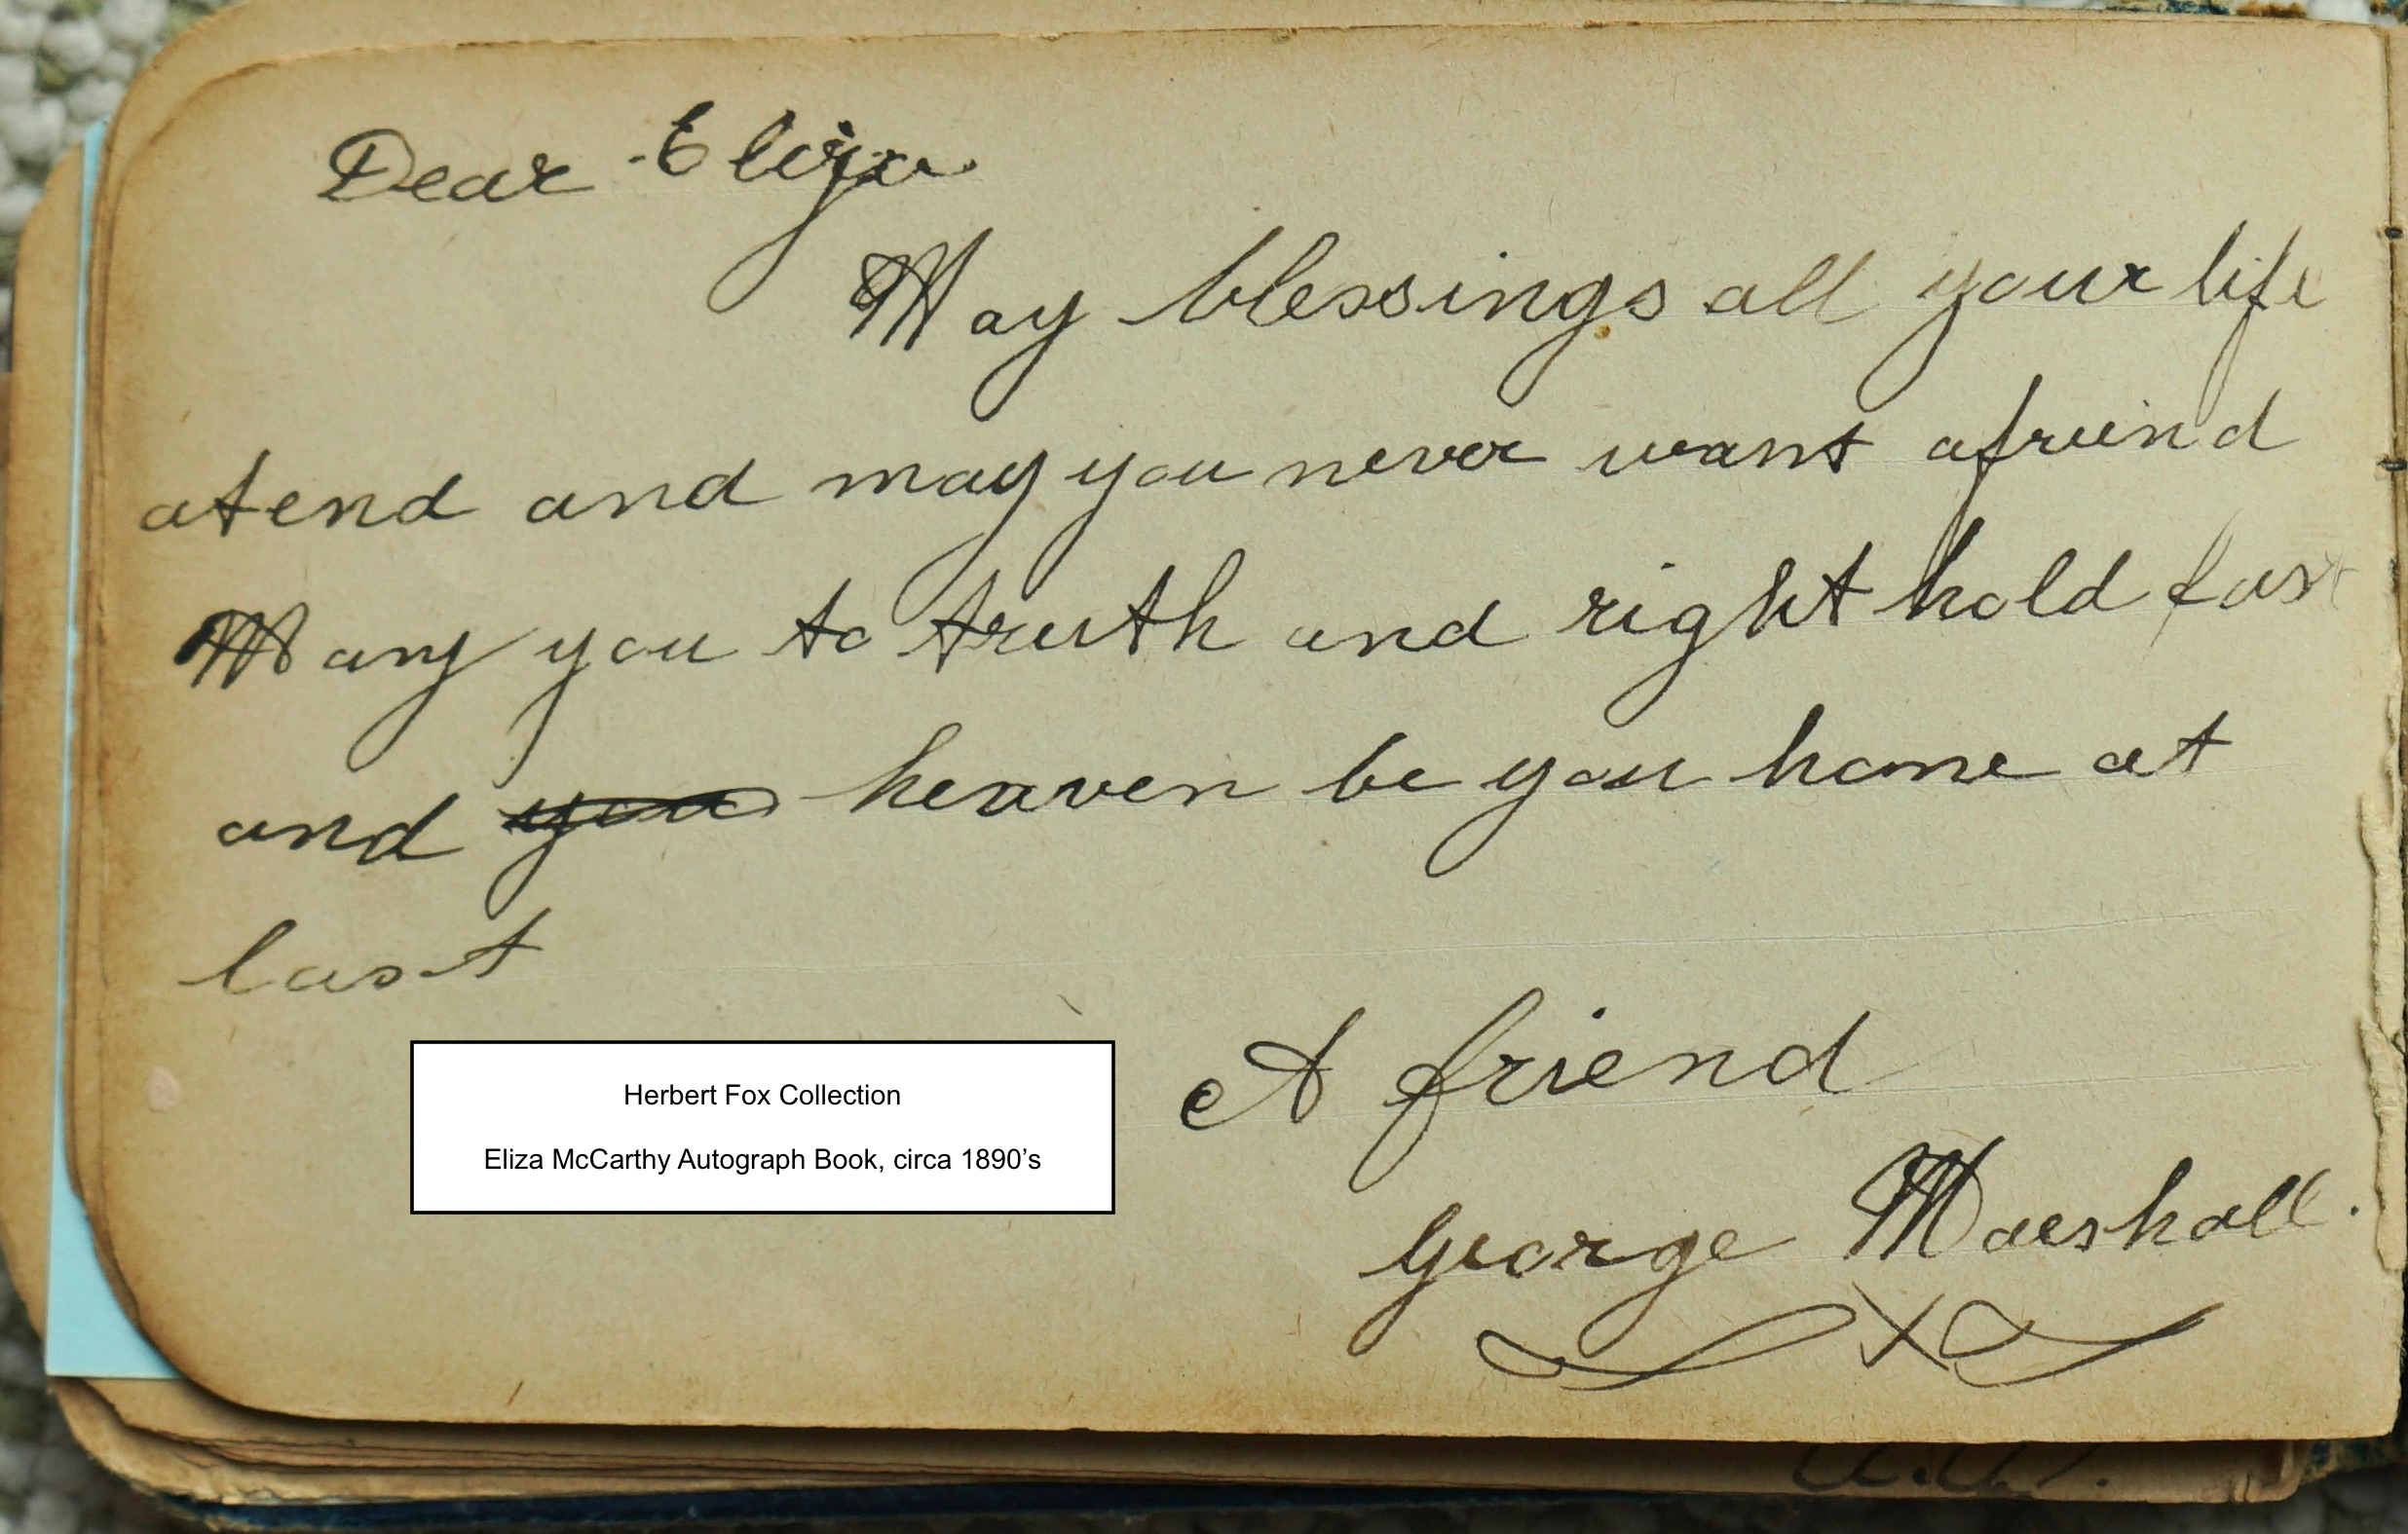 Dear Eliza
May blessings all your life
atend and may you never want afreind
May you to truth and right hold fast
and you heaven be you home at
last
A friend
George Marshall.
Herbert Fox Collection
Eliza McCarthy Autograph Book, circa 1890’s